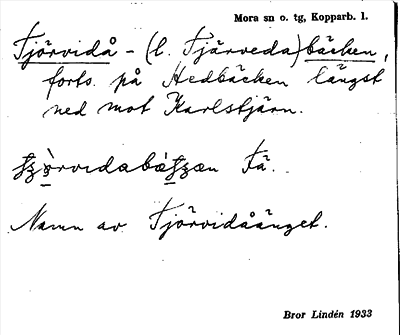 Mora sn o. tg, Kopparb. l.
Tjörvidå - (l. Tjärveda) bäcken,
forts. på Hedbäcken längst
ned mot Karlstjärn.
Fä.
Namn av Tjörvidåänget.
Bror Lindén 1933